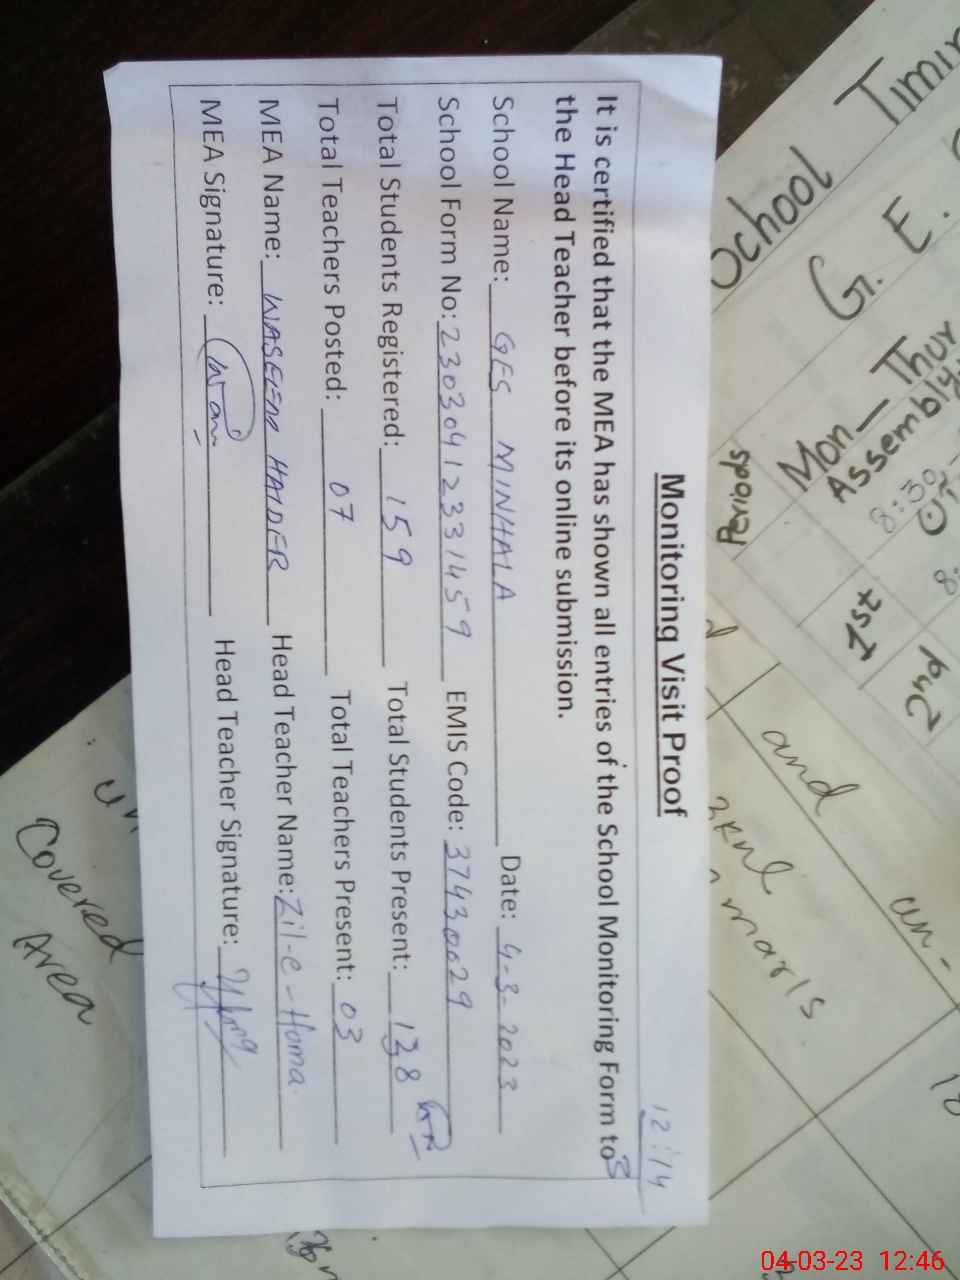 12:14
Monitoring Visit Proof
It is certified that the MEA has shown all entries of the School Monitoring Form to
the Head Teacher before its online submission.
School Name: GES MINHALA Date: 4-3-2023
School Form No: 23030412331459 EMIS Code: 37430029
Total Students Registered: 159 Total Students Present: 138
Total Teachers Posted: 07 Total Teachers Present: 03
MEA Name: WASEEM HAIDER Head Teacher Name: Zil-e-Homa.
MEA Signature: Head Teacher Signature:
School Timin
G. E.
Mon-Thur
Assembly
8:30
Periods
1st
2nd
8:
and
un-
marls
Covered
Area
04-03-23 12:46